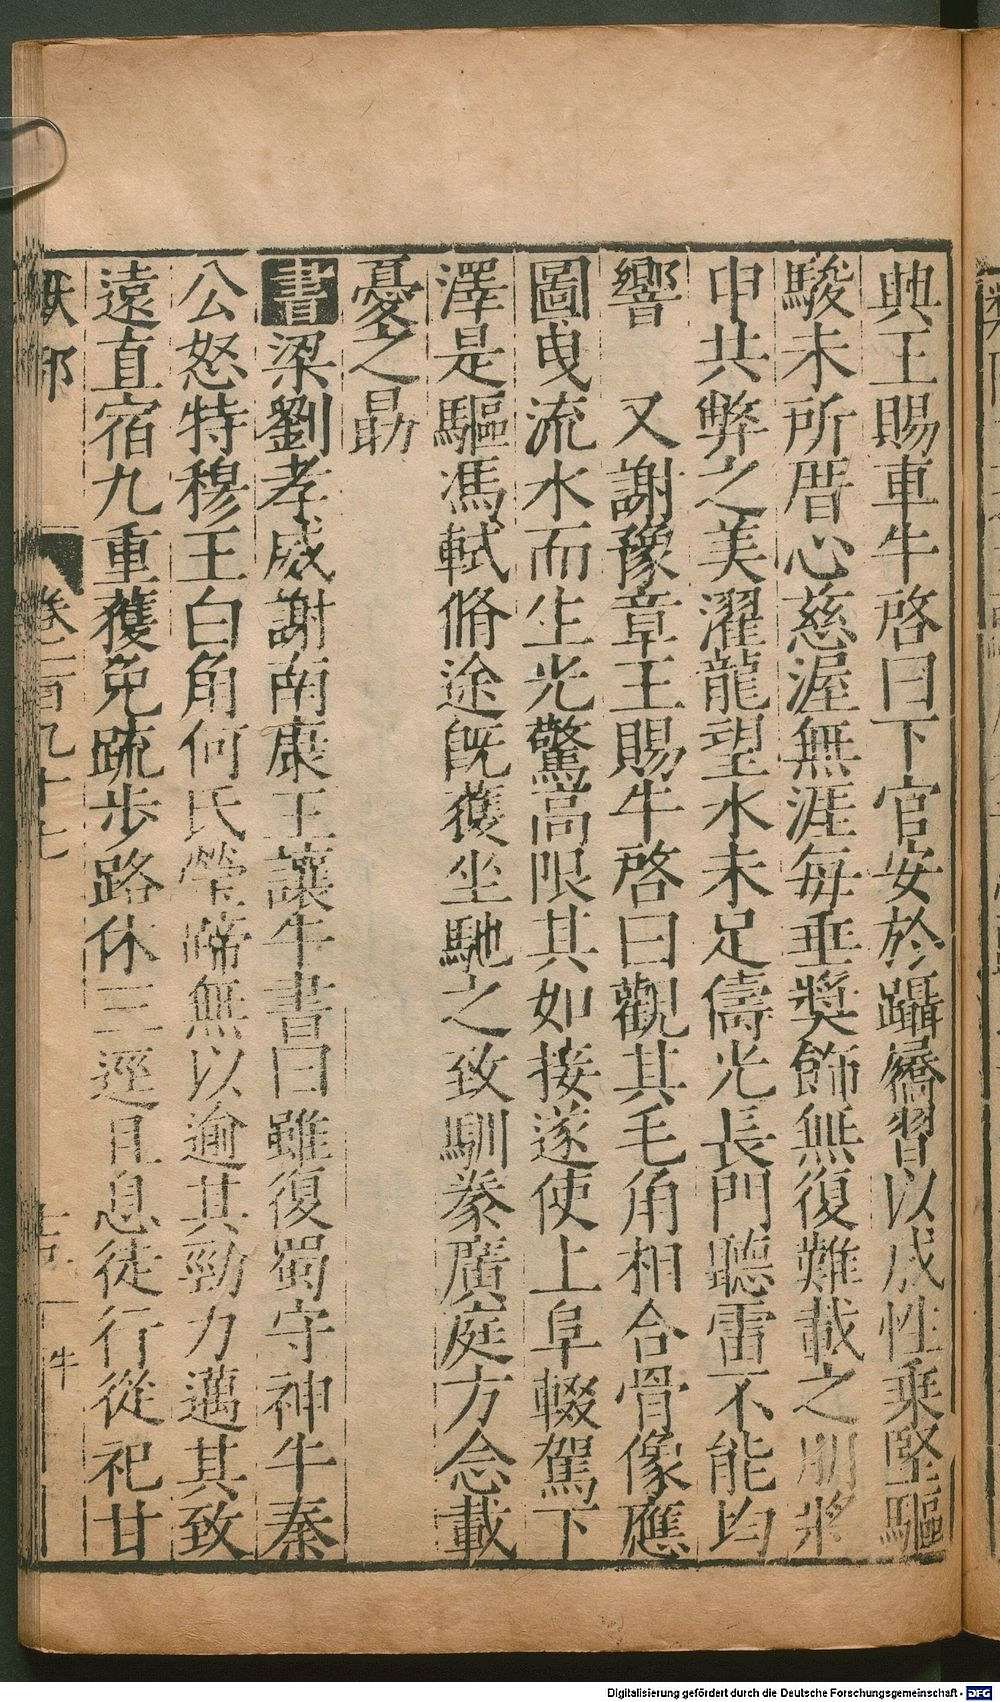 典王賜車牛啓曰下官安於躡屩習以成性乗堅驅
駿未所厝心慈渥無涯毎垂奬飾無復難載之朋將
申共弊之美濯龍望水未足儔光長門聽雷不能均
響　又謝豫章王賜牛啓曰觀其毛角相合骨像應
圖曵流水而生光驚高限其如接遂使上阜輟駕下
澤是驅馮軾脩途旣獲坐馳之致馴豢廣庭方念載
憂之勗
書梁劉孝威謝南康王讓牛書曰雖復蜀守神牛秦
公怒特穆王白角何氏瑩蹄無以逾其勁力邁其致
遠直宿九重獲免疏步路休三逕且息徒行從祀甘
獸部 卷二百九十七 牛
Digitalisierung gefördert durch die Deutsche Forschungsgemeinschaft - DFG